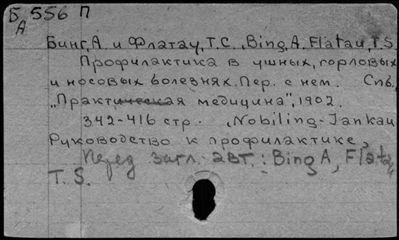 Б 556 П
А
Бинг, А. и Флатау, Т. С., Bing, A. Flatau, T. S.
Профилактика в ушных, горловых
и носовых болезнях. Пер. с нем. Спб.,
„Практическая медицина", 1902.
342-416 стр. „Nobiling-Jankau
Руководство к профилактике,
Перед загл. авт.: Bing A, Flatau
T. S.